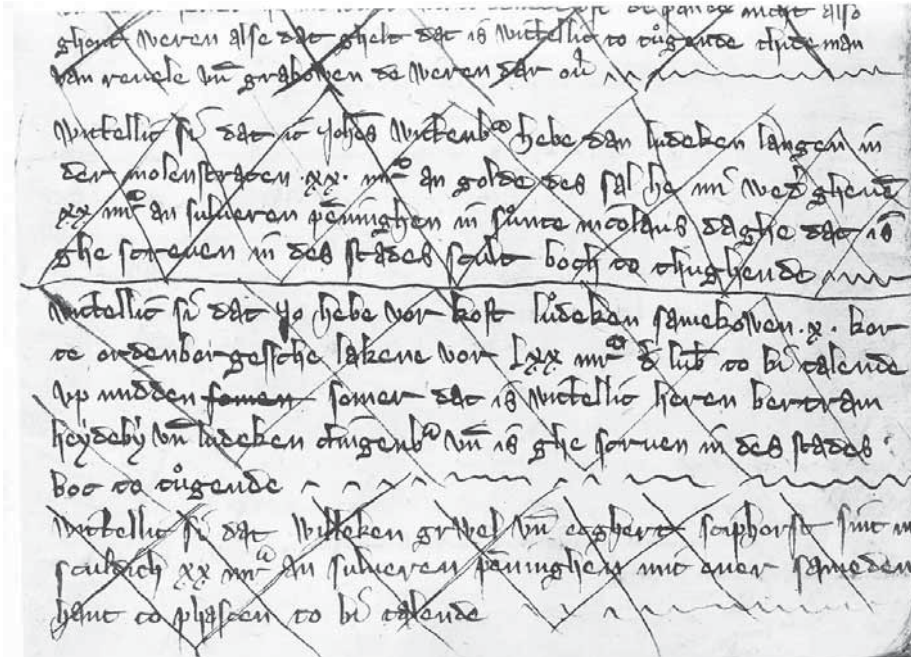 de pande nicht also
ghout weren alse dat ghelt dat is witlellic to tůgende thideman
van revele vn̄ grabowen de weren dar ou̓
witlellic si dat ic Johēs witlenb᷑ hebe dan ludeken langen in
der molenstraten .xx. mr᷑ an golde des sal he mi wed̓ gheuē
xx mr᷑ an sulueren pēninghen in sůnte nicolaus daghe dat is
ghe screuen in des stades scult boch to thughende
witlellic si dat Jo hebe vor koft lůdeken samekowen .x. kor
te ordenborgessche lakene vor lxx mr᷑ d̄ lub̄ to bi talende
vp midden somer dat is witlellic heren bertram
heydeby vn̄ ludeken clingenb᷑ vn̄ is ghe scruen in des stades
boc to tůgende
witlellic si dat willeken gruwel vn̄ ecghert sciphorst sint
sculdich xx mr᷑ an sulueren pēninghen mit ener sameden
hant to phascen to bi talende